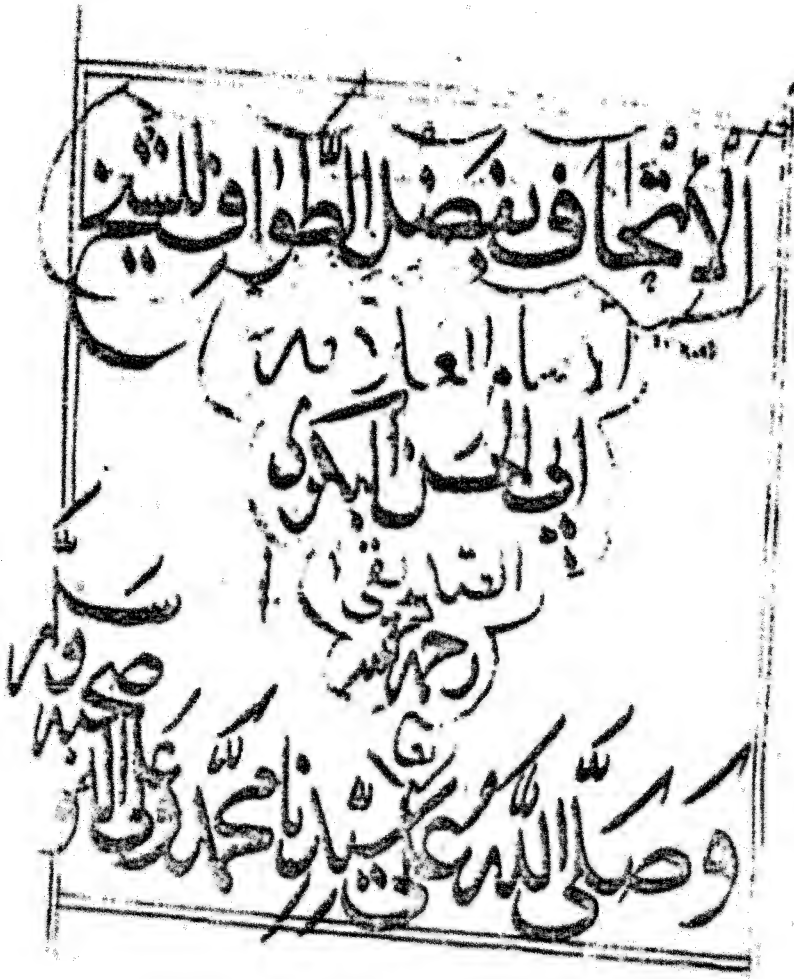 الاتحاف بفضل الطواف للشيخ
الامام العلامة
ابي الحسن البكري
الصديقي
رحمه الله
تعالى
وَصَلَّى اللّٰه عَلى سَيِّدنا مُحَمَّد وَعَلى اله و
صحبه
وسَلَّم